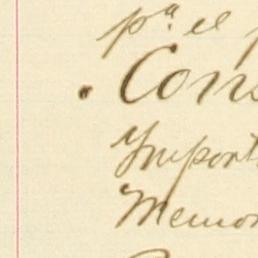 pª el
. Cons
Import
Memor